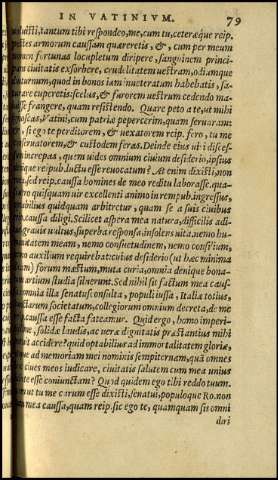 IN VATINIVM. 79
tantum tibi respondeo, me, cum tu, ceteræque reip.
pestes armorum caussam quæreretis, & cum per meum
nomen fortunas locupletum diripere, sanguinem princi-
ciuitatis exsorbere, crudelitatem uestram, odiumque
quod in bonos iam inueteratum habebatis, sa-
cuperetis: scelus, & furorem uestrum cedendo ma-
frangere, quam resistendo. Quare peto a te, ut mihi
Vatini, cum patriæ pepercerim, quam seruaram:
si ego te perditorem, & uexatorem reip. fero, tu me
& custodem feras. Deinde eius uiri disces-
increpas, quem uides omnium ciuium desiderio, ipsius
reipub. luctu esse reuocatum? At enim dixisti, non
sed reip. caussa homines de meo reditu laborasse. qua-
quisquam uir excellenti animo in rempub. ingressus,
quidquam arbitretur, quam se a suis ciuibus
caussa diligi. Scilicet aspera mea natura, difficilis adi-
uultus, superba responsa, insolens uita. nemo hu-
meam, nemo consuetudinem, nemo consilium,
auxilium requirebat: cuius desiderio (ut hæc minima
forum mæstum, muta curia, omnia denique bona-
artium studia siluerunt. Sed nihil sit factum mea caus-
omnia illa senatusconsulta, populi iussa, Italiæ totius,
societatum, collegiorum omnium decreta, de me
caussa esse facta fateamur. Quid ergo, homo imperi-
solidæ laudis, ac ueræ dignitatis præstantius mihi
accidere? quid optabilius ad immortalitatem gloriæ,
ad memoriam mei nominis sempiternam, quã omnes
ciues meos iudicare, ciuitatis salutem cum mea unius
esse coniunctam? Quod quidem ego tibi reddo tuum.
ut tu me carum esse dixisti, senatui, populoque Ro. non
mea caussa, quam reip. sic ego te, quamquam sis omni
diri